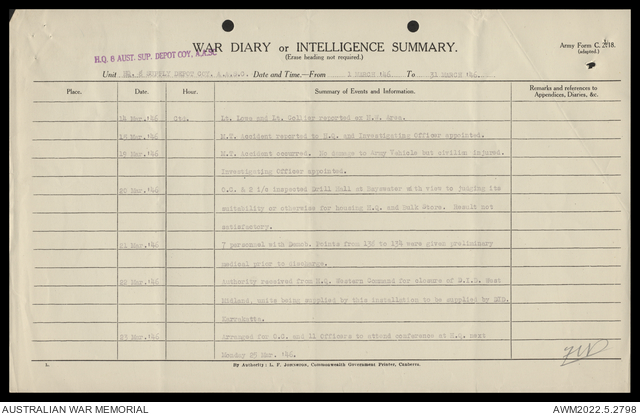 H.Q. 8 AUST. SUP. DEPOT COY. A.A.S.C
WAR DIARY or INTELLIGENCE SUMMARY.
(Erase heading not required.)
Army Form C. 2118.
(adapted.)
Unit HQ. 8 SUPPLY DEPOT COY. A.A.S.C. Date and Time.—From 1 MARCH '46 To 31 MARCH '46.
Place. Date. Hour. Summary of Events and Information. Remarks and references to
Appendices, Diaries, &c.
14 Mar.'46 Lt. Love and Lt. Collier reported ex N.W. Area.
15 Mar.'46 M.T. Accident reported to H.Q. and Investigating Officer appointed.
19 Mar.'46 M.T. Accident occurred. No damage to Army Vehicle but civilian injured.
Investigating Officer appointed.
20 Mar.'46 O.C. & 2 i/c inspected Drill Hall at with view to judging its
suitability or otherwise for housing H.Q. and Bulk Store. Result not
satisfactory.
21 Mar.'46 7 personnel with Demob. Points from 136 to 134 were given preliminary
medical prior to discharge.
22 Mar.'46 Authority received from H.Q. Western Command for closure of West
Midland, units being supplied by this installation to be supplied by
Karrakatta.
23 Mar.'46 Arranged for O.C. and 11 Officers to attend conference at H.Q. next
Monday 25 Mar. '46.
L. By Authority: L. F. Johnston, Commonwealth Government Printer, Canberra.
AUSTRALIAN WAR MEMORIAL AWM2022.5.2798